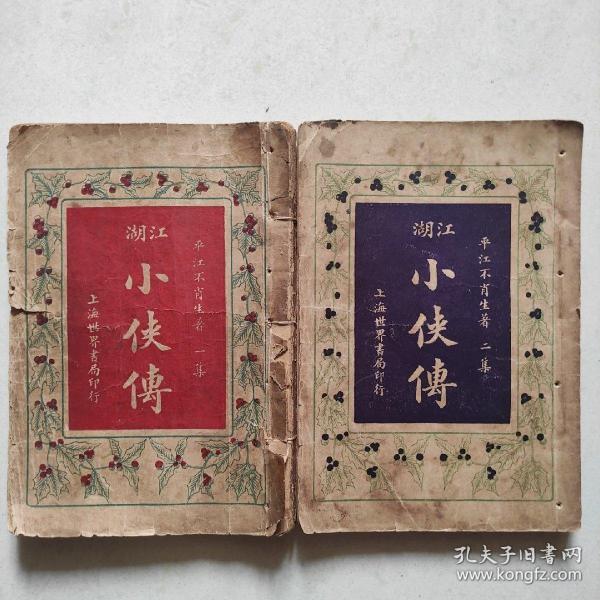 江湖
小俠傳
平江不肖生著 一集
上海世界書局印行
江湖
小俠傳
平江不肖生著 二集
上海世界書局印行
孔夫子旧书网
www.kongfz.com